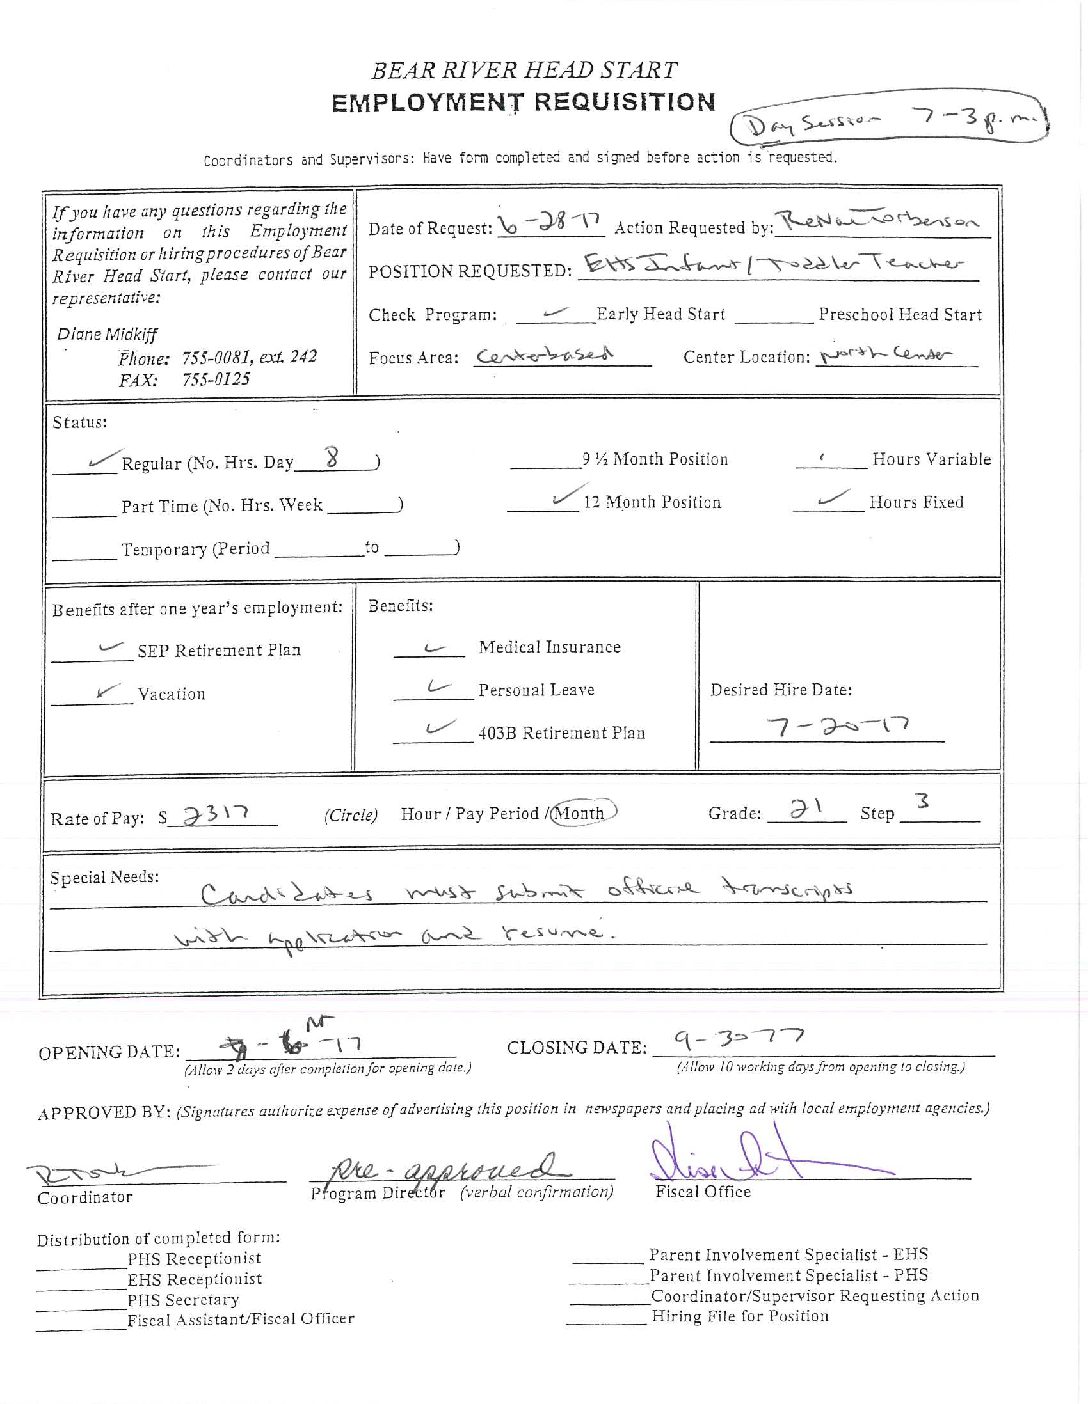 BEAR RIVER HEAD START
EMPLOYMENT REQUISITION
Day Session 7-3 p.m.
Coordinators and Supervisors: Have form completed and signed before action is requested.
If you have any questions regarding the
information on this Employment
Requisition or hiring procedures of Bear
River Head Start, please contact our
representative:
Diane Midkiff
Phone: 755-0081, ext. 242
FAX: 755-0125
Date of Request: 6-28-17 Action Requested by: ReNae Torbenson
POSITION REQUESTED: EHS Infant/Toddler Teacher
Check Program: ✓ Early Head Start ______ Preschool Head Start
Focus Area: Centerbased Center Location: North Center
Status:
✓ Regular (No. Hrs. Day 8 ) ______ 9 ½ Month Position ______ Hours Variable
______ Part Time (No. Hrs. Week ______) ✓ 12 Month Position ✓ Hours Fixed
______ Temporary (Period ______ to ______)
Benefits after one year's employment:
✓ SEP Retirement Plan
✓ Vacation
Benefits:
✓ Medical Insurance
✓ Personal Leave
✓ 403B Retirement Plan
Desired Hire Date:
7-20-17
Rate of Pay: $ 2317 (Circle) Hour / Pay Period / Month Grade: 21 Step 3
Special Needs: Candidates must submit official transcripts
with application and resume.
OPENING DATE: -17 CLOSING DATE: 9-30-77
(Allow 2 days after completion for opening date.) (Allow 10 working days from opening to closing.)
APPROVED BY: (Signatures authorize expense of advertising this position in newspapers and placing ad with local employment agencies.)
Pre-approved
Coordinator Program Director (verbal confirmation) Fiscal Office
Distribution of completed form:
______ PHS Receptionist
______ EHS Receptionist
______ PHS Secretary
______ Fiscal Assistant/Fiscal Officer
______ Parent Involvement Specialist - EHS
______ Parent Involvement Specialist - PHS
______ Coordinator/Supervisor Requesting Action
______ Hiring File for Position